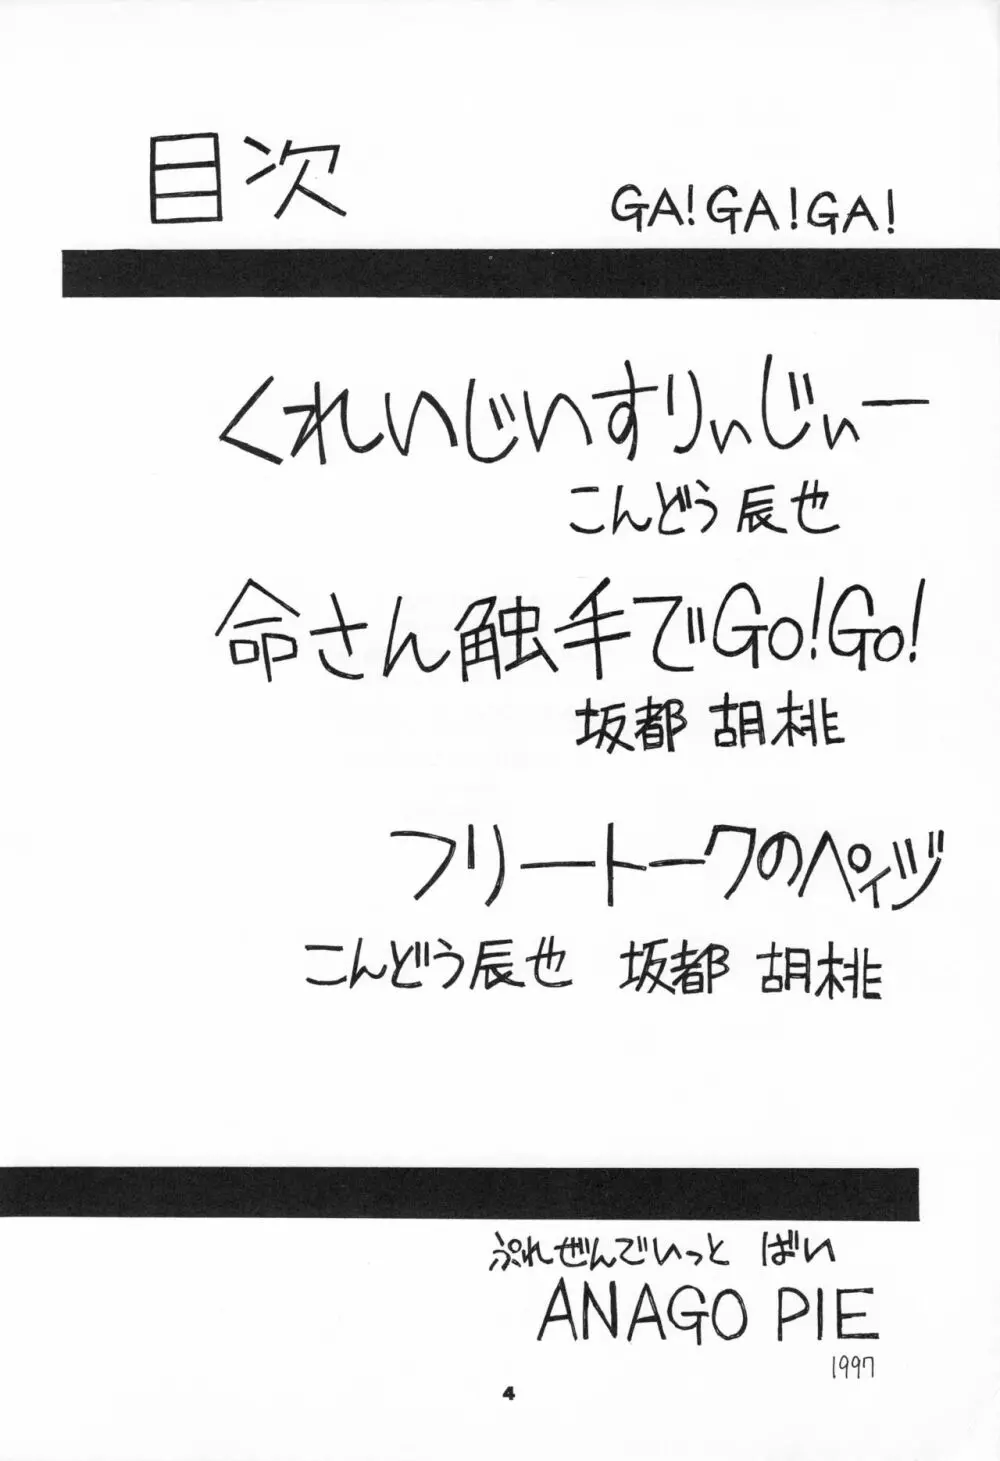 目次
GA!GA!GA!
くれいじいすりぃじぃー
こんどう辰也
命さん触手でGo!Go!
坂都 胡桃
フリートークのペィヅ
こんどう辰也 坂都 胡桃
ぷれぜんでいっと ばい
ANAGO PIE
1997
4